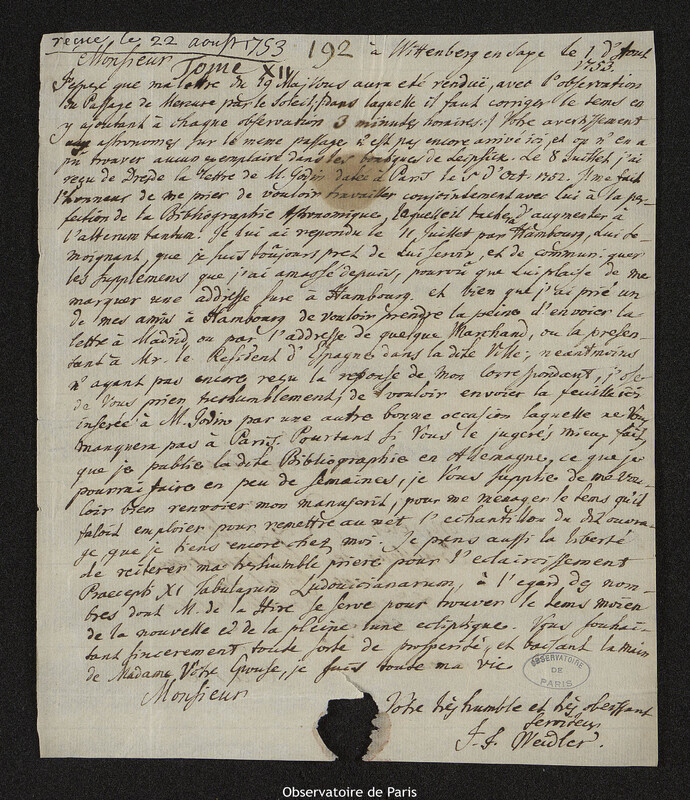 reçue le 22 aoust 1753 192 à Wittenberg en Saxe le 1 d'Aout
1753.
Monsieur Tome XIV
J'espere que ma lettre du 19 Maj Vous aura eté renduë, avec l'observation
du Passage de Mercure par le Soleil, (dans laquelle il faut corriger le tems en
y ajoutant à chaque observation 3 minutes horaires.) Vôtre avertissement
aux astronomes sur le meme passage n'est pas encore arrivé ici, et on n'en a
pu trouver aucun exemplaire dans les boutiques de Leipsick. Le 8 Juillet j'ai
reçu de Dresde la lettre de M. Godin datée à Paris le 15 d'Oct. 1752. Il me fait
l'honneur de me prier de vouloir travailler conjointement avec lui à la per-
fection de la Bibliographie Astronomique, laquelle il tache d'augmenter à
l'alterum tantum. Je lui ai repondu le 11 Juillet par Hambourg, lui te-
moignant, que je suis toujours pret de Lui servir, et de communiquer
les supplemens que j'ai amassé depuis, pourvû que Lui plaise de me
marquer une addresse sure à Hambourg. et bien que j'ai prié un
de mes amis à Hambourg de vouloir prendre la peine d'envoier la
lettre à Madrid ou par l'addresse de quelque Marchand, ou la presen-
tant à Mr. le Resident d'Espagne dans la dite Ville; neantmoins
n'ayant pas encore reçu la reponse de mon Correspondant, j'ose
de Vous prier treshumblement, de vouloir envoier la feuille ici
inserée à M. Godin par une autre bonne occasion laquelle ne Vous
manquera pas à Paris. Pourtant si Vous le jugerés mieux fait,
que je publie la dite Bibliographie en Allemagne, ce que je
pourrai faire en peu de semaines, je Vous supplie de me vou-
loir bien renvoier mon manuscrit, pour me menager le tems qu'il
faloit emploier pour remettre au net l'echantillon du dit ouvra-
ge que je tiens encore chez moi. Je prens aussi la liberté
de reiterer ma treshumble priere pour l'eclaircissement
Praecepti XI Tabularum Ludovicianarum, à l'egard des nom-
bres dont M. de la Hire se serve pour trouver le tems moïen
de la nouvelle et de la pleine lune ecliptique. Vous souhai-
tant sincerement toute sorte de prosperité, et baisant la main
de Madame Vôtre Epouse, je suis toute ma vie
Monsieur
Vôtre très humble et très obeissant
serviteur
J. F. Weidler.
OBSERVATOIRE
DE
PARIS
Observatoire de Paris